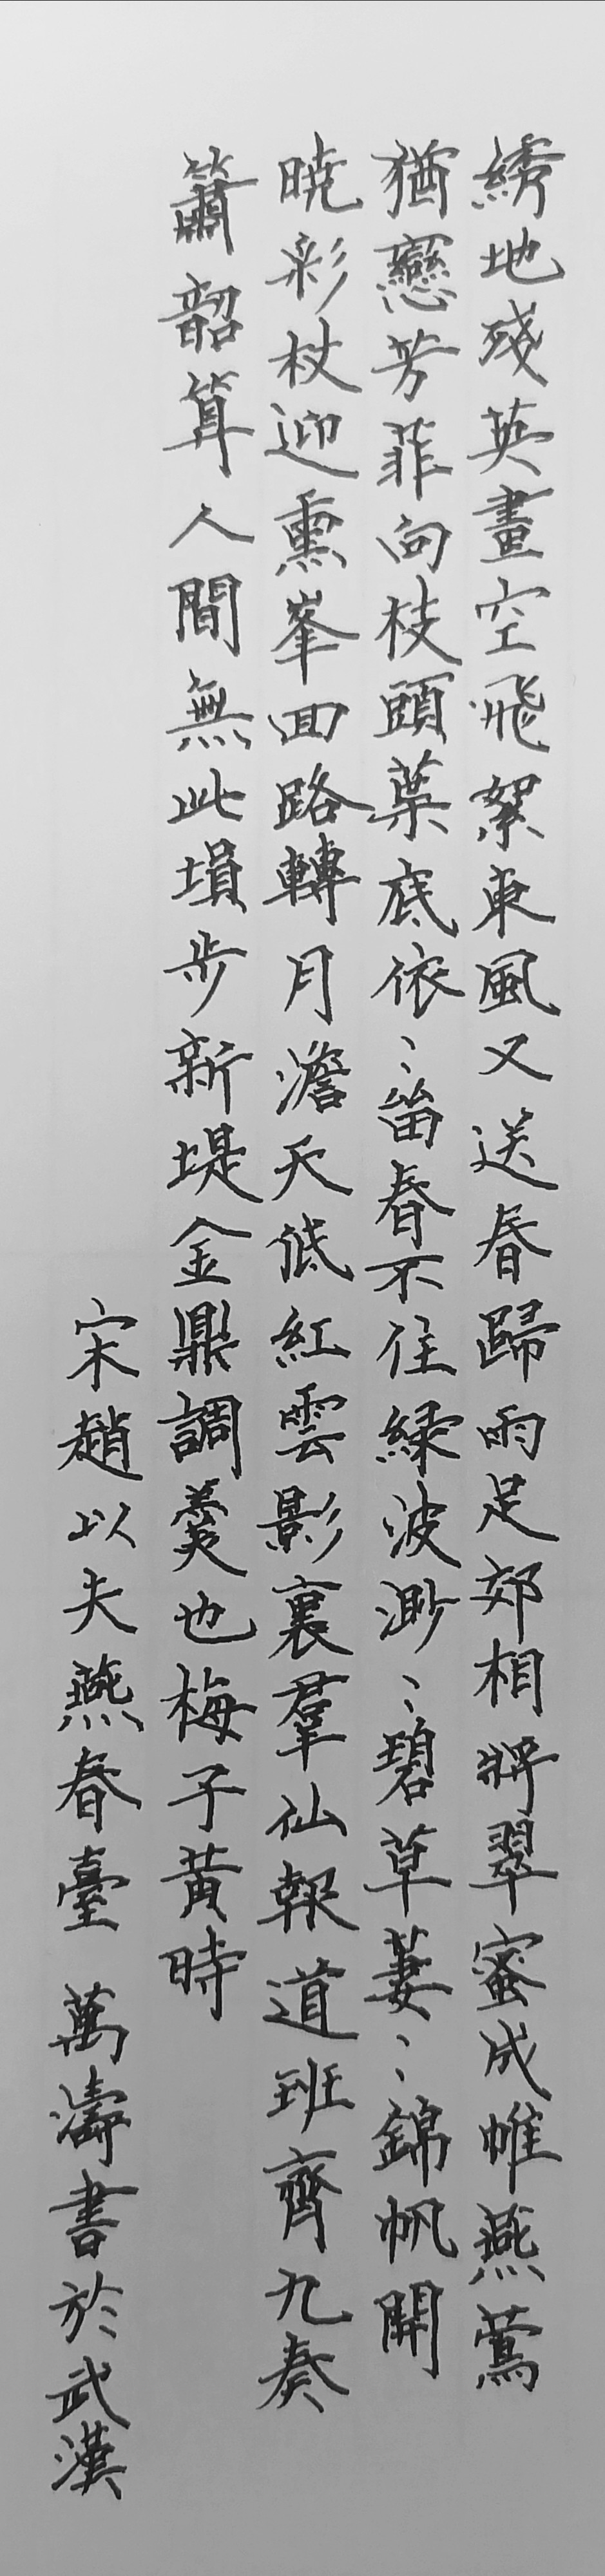 綉地殘英畫空飛絮東風又送春歸雨足郊相將翠蜜成帷燕鶯
猶戀芳菲向枝頭葉底依〻畱春不住綠波渺〻碧草萋〻錦帆開
曉彩杖迎熏峯回路轉月澹天低紅雲影裏羣仙報道班齊九奏
簫韶算人間無此塤步新堤金鼎調羹也梅子黃時
宋趙以夫燕春臺 萬濤書於武漢